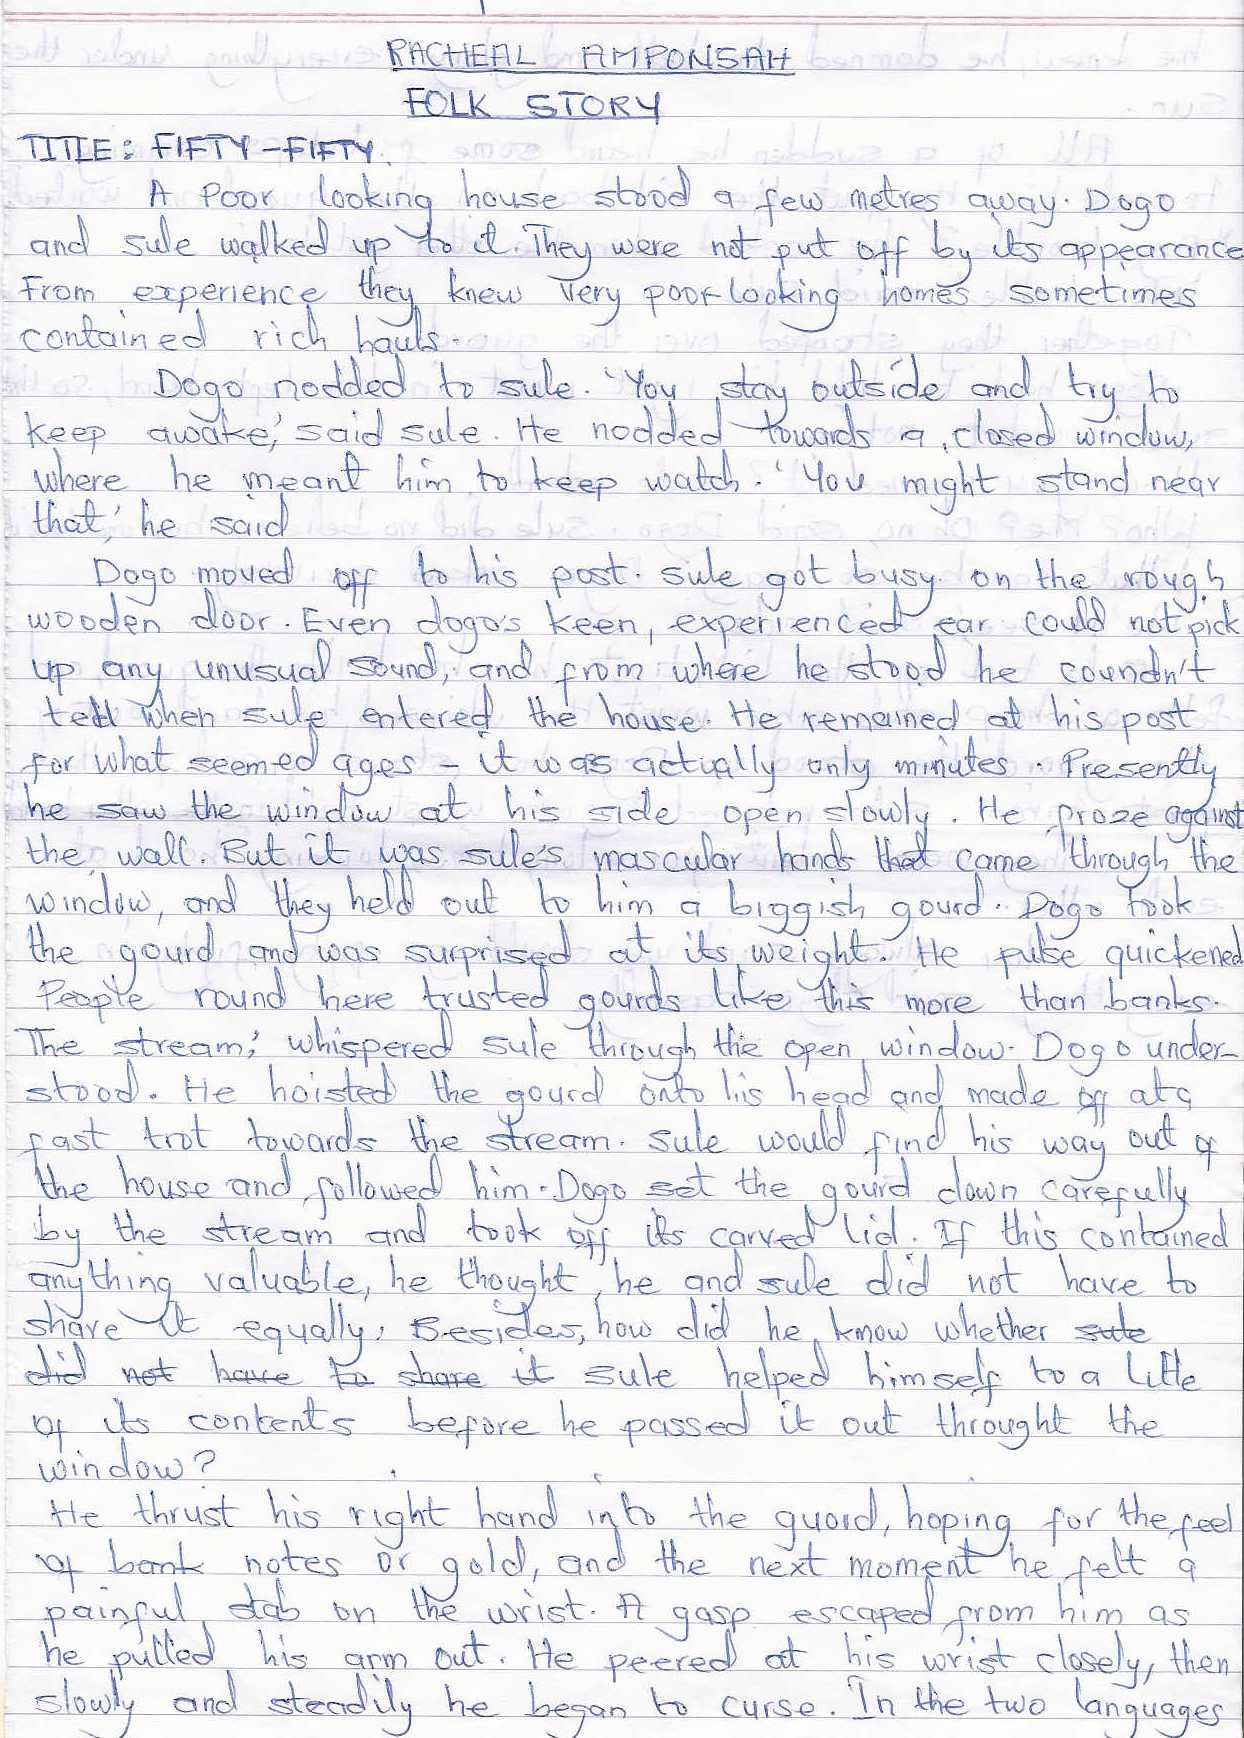 RACHEAL AMPONSAH
FOLK STORY
TITLE: FIFTY-FIFTY.
A Poor looking house stood a few metres away. Dogo
and sule walked up to it. They were not put off by its appearance
From experience they knew very poor looking homes sometimes
contained rich hauls.
Dogo nodded to sule. 'You stay outside and try to
keep awake,' said sule. He nodded towards a closed window,
where he meant him to keep watch. 'You might stand near
that,' he said
Dogo moved off to his post. sule got busy on the rough
wooden door. Even dogo's keen, experienced ear could not pick
up any unusual sound, and from where he stood he coundn't
tell when sule entered the house. He remained at his post
for what seemed ages - it was actually only minutes. Presently
he saw the window at his side open slowly. He froze against
the wall. But it was sule's mascular hands that came through the
window, and they held out to him a biggish gourd. Dogo took
the gourd and was surprised at its weight. He pulse quickened
People round here trusted gourds like this more than banks.
The stream,' whispered sule through the open window. Dogo under-
stood. He hoisted the gourd onto his head and made off at a
fast trot towards the stream. sule would find his way out of
the house and followed him. Dogo set the gourd down carefully
by the stream and took off its carved lid. If this contained
anything valuable, he thought, he and sule did not have to
share it equally. Besides, how did he know whether sule
did not have to share it sule helped himself to a little
of its contents before he passed it out throught the
window?
He thrust his right hand into the guord, hoping for the feel
of bank notes or gold, and the next moment he felt a
painful stab on the wrist. A gasp escaped from him as
he pulled his arm out. He peered at his wrist closely, then
slowly and steadily he began to curse. In the two languages